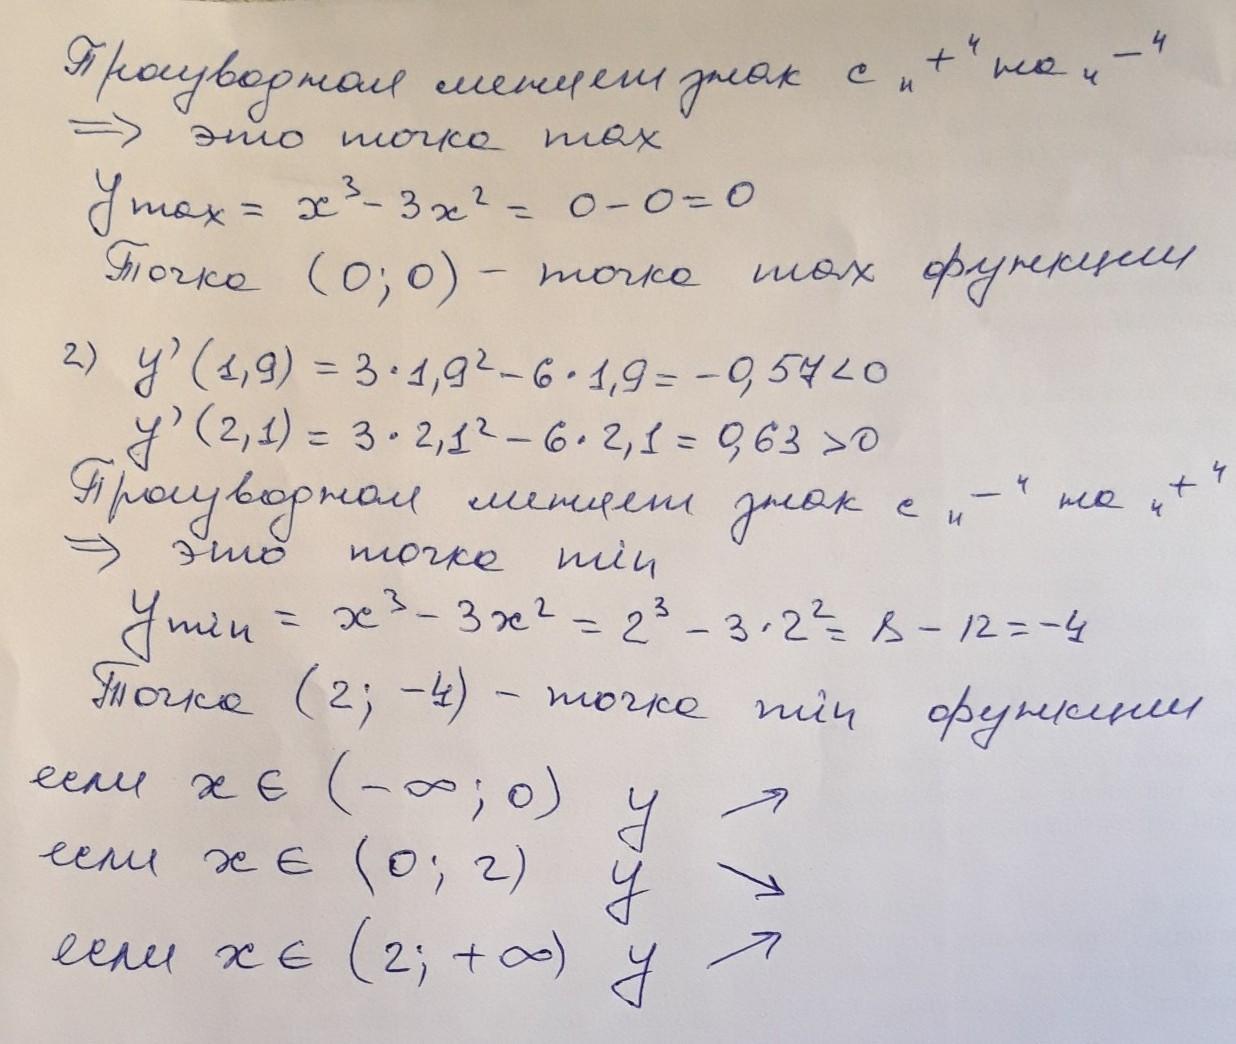 Производная меняет знак с „+“ на „-“
=> это точка max
y max = x³ - 3x² = 0 - 0 = 0
Точка (0; 0) - точка max функции
2) y'(1,9) = 3·1,9² - 6·1,9 = -0,57 < 0
y'(2,1) = 3·2,1² - 6·2,1 = 0,63 > 0
Производная меняет знак с „-“ на „+“
=> это точка min
y min = x³ - 3x² = 2³ - 3·2² = 8 - 12 = -4
Точка (2; -4) - точка min функции
если x ∈ (-∞; 0) y ↗
если x ∈ (0; 2) y ↘
если x ∈ (2; +∞) y ↗